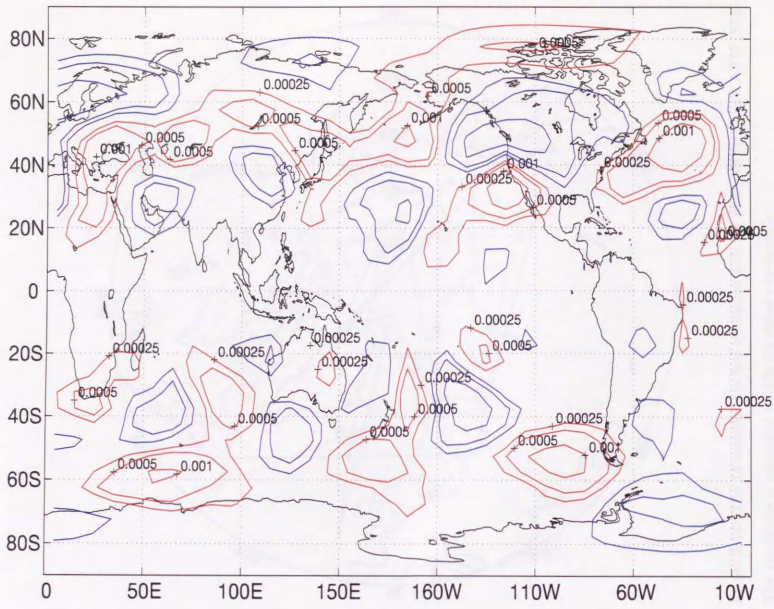 80N
60N
40N
20N
0
20S
40S
60S
80S
0.0005
0.00025
0.0005
0.001
0.0005
0.0005
0.001
0.0005
0.001
0.00025
0.001
0.00025
0.0005
0.0005
0.00025
0.00025
0.00025
0.00025
0.0005
0.00025
0.00025
0.00025
0.0005
0.0005
0.00025
0.00025
0.0005
0.0005
0.001
0.0005
0.001
0 50E 100E 150E 160W 110W 60W 10W